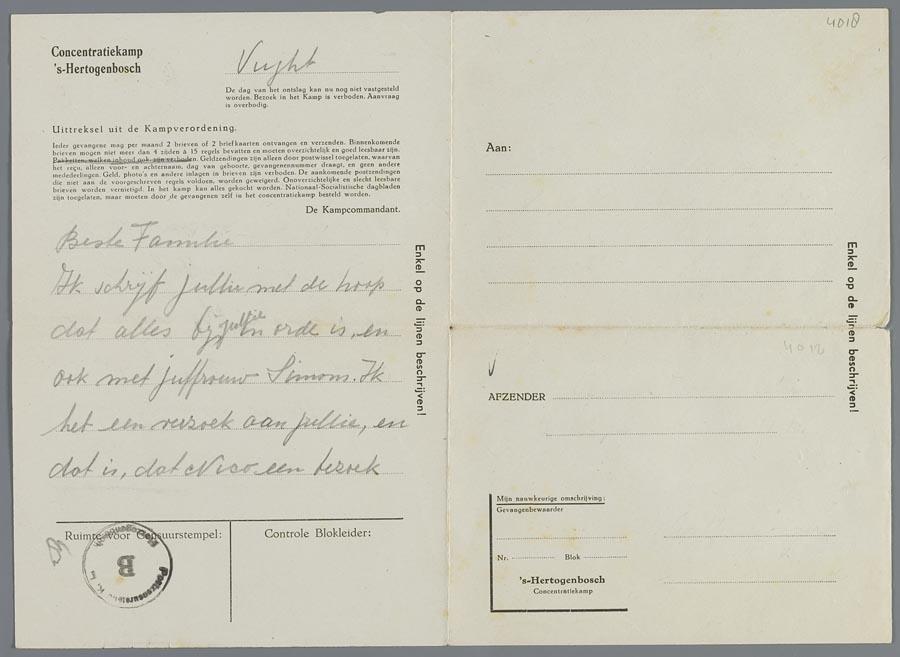 Concentratiekamp
's-Hertogenbosch
Vught
De dag van het ontslag kan nu nog niet vastgesteld
worden. Bezoek in het Kamp is verboden. Aanvraag
is overbodig.
Uittreksel uit de Kampverordening.
Ieder gevangene mag per maand 2 brieven of 2 briefkaarten ontvangen en verzenden. Binnenkomende
brieven mogen niet meer dan 4 zijden à 15 regels bevatten en moeten overzichtelijk en goed leesbaar zijn.
Pakketten, welken inhoud ook, zijn verboden. Geldzendingen zijn alleen door postwissel toegelaten, waarvan
het reçu, alleen voor- en achternaam, dag van geboorte, gevangenennummer draagt, en geen andere
mededeelingen. Geld, photo's en andere inlagen in brieven zijn verboden. De aankomende postzendingen
die niet aan de voorgeschreven regels voldoen, worden geweigerd. Onoverzichtelijke en slecht leesbare
brieven worden vernietigd. In het kamp kan alles gekocht worden. Nationaal-Socialistische dagbladen
zijn toegelaten, maar moeten door de gevangenen zelf in het concentratiekamp besteld worden.
De Kampcommandant.
Beste Familie
Ik schrijf jullie met de hoop
dat alles bij jullie in orde is, en
ook met juffrouw Simons. Ik
het een verzoek aan jullie, en
dat is, dat Nico een bezoek
Enkel op de lijnen beschrijven!
Ruimte voor Censuurstempel:
Controle Blokleider:
B
4018
Aan:
Enkel op de lijnen beschrijven!
4018
AFZENDER
Mijn nauwkeurige omschrijving:
Gevangenbewaarder
Nr. Blok
's-Hertogenbosch
Concentratiekamp